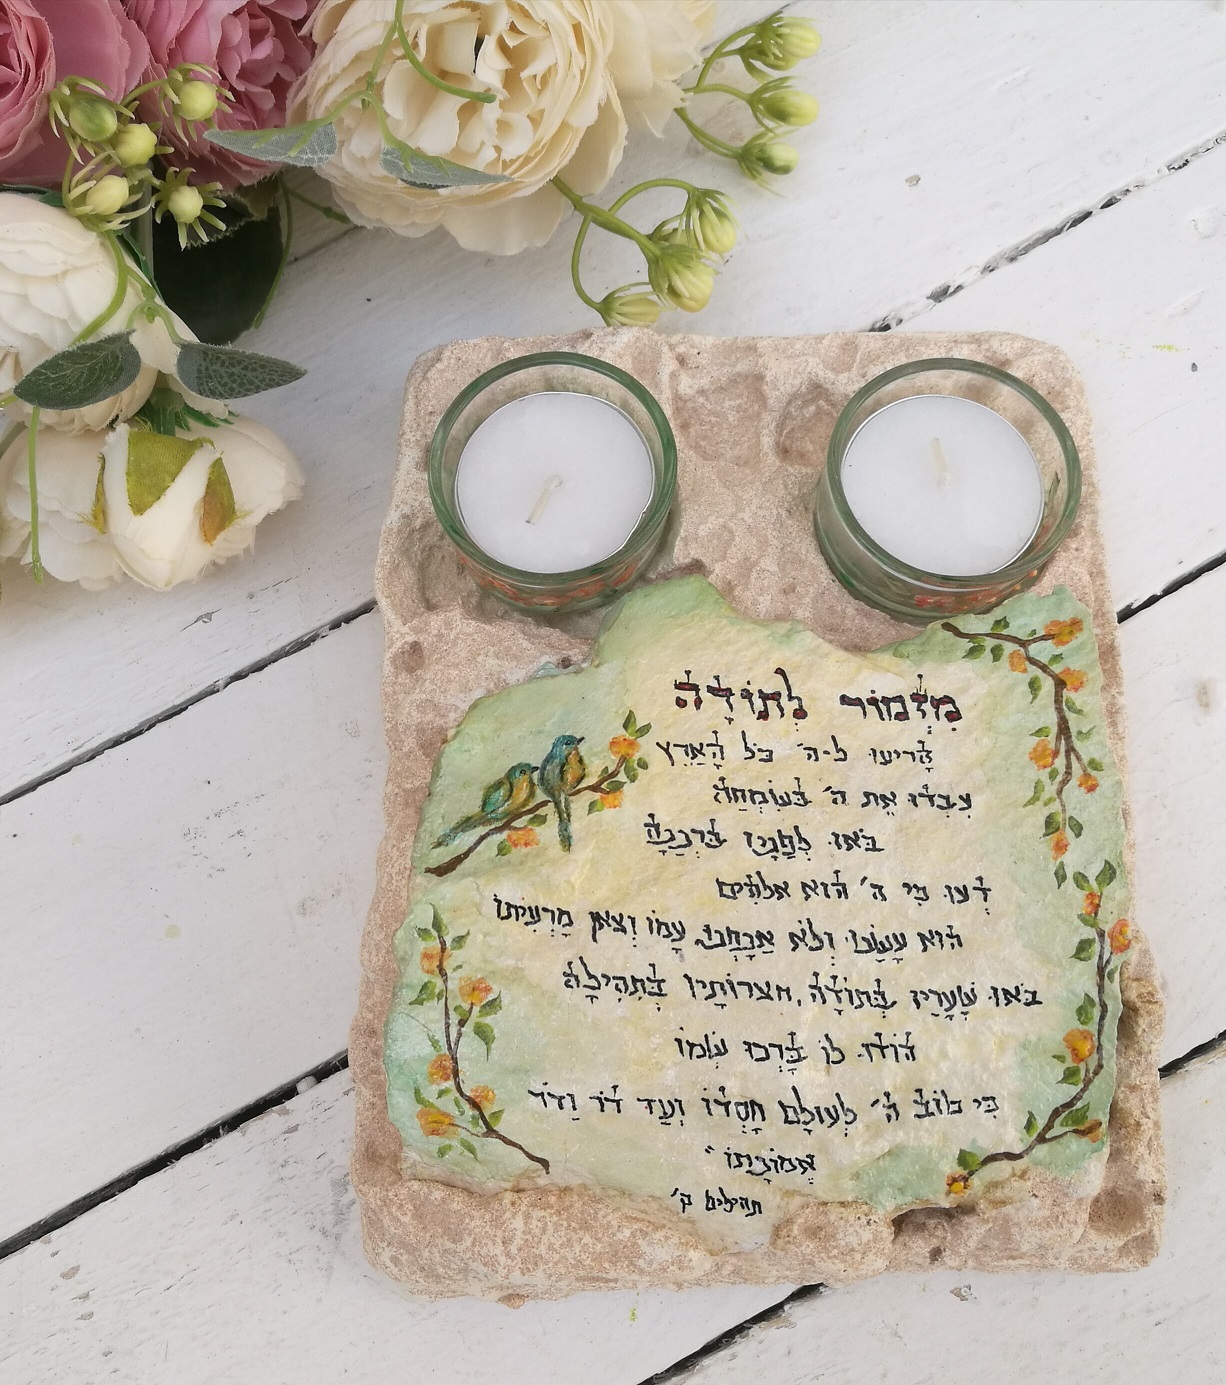 מִזְמוֹר לְתוֹדָה
הָריעו ל-ה׳ כל הָאָרֶץ
עִבְדוּ אֶת ה׳ בְּשִׂמְחָה
בֹּאוּ לְפָנָיו בִּרְנָנָה
דְּעוּ כִּי ה׳ הוּא אלהִים
הוּא עָשָׂנוּ וְלֹא אֲנַחְנוּ עַמּוֹ וְצאן מַרְעִיתוֹ
בֹּאוּ שְׁעָרָיו בְּתוֹדָה, חצרוֹתָיו בִּתְהִילָה
הוֹדוּ לוֹ בָּרְכוּ שְׁמוֹ
כִּי טוֹב ה׳ לְעוֹלָם חַסְדּוֹ וְעַד דֹּר וָדֹר
אֱמוּנָתוֹ"
תהילים ק׳